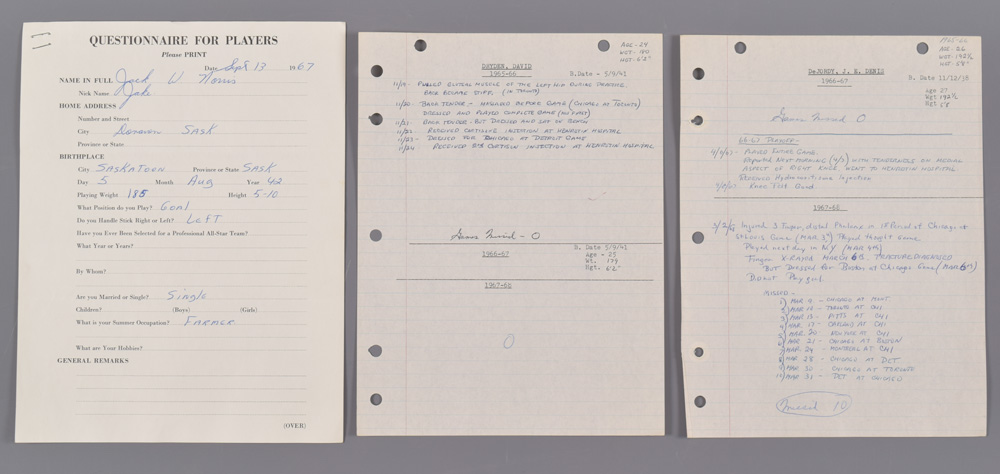 QUESTIONNAIRE FOR PLAYERS
Please PRINT
Date Sept 13 1967
NAME IN FULL Jack W Norris
Nick Name Jake
HOME ADDRESS
Number and Street
City SASK
Province or State
BIRTHPLACE
City SASKATOON Province or State SASK
Day 5 Month Aug Year 42
Playing Weight 185 Height 5-10
What Position do you Play? Goal
Do you Handle Stick Right or Left? Left
Have you Ever Been Selected for a Professional All-Star Team?
What Year or Years?
By Whom?
Are you Married or Single? Single
Children? (Boys) (Girls)
What is your Summer Occupation? Farmer
What are Your Hobbies?
GENERAL REMARKS
(OVER)
AGE - 24
WGT - 180
HGT - 6'2"
DRYDEN, DAVID
1965-66 B.Date - 5/9/41
11/19 - PULLED GLUTEAL MUSCLE OF THE LEFT HIP DURING PRACTISE.
BACK BECAME STIFF. (IN TORONTO)
11/20 - BACK TENDER - MASSAGED BEFORE GAME (CHICAGO AT TORONTO)
DRESSED AND PLAYED COMPLETE GAME
11/21 - BACK TENDER - BUT DRESSED AND SAT ON BENCH
11/22 RECEIVED CORTISONE INJECTION AT HENROTIN HOSPITAL
11/23 - DRESSED FOR CHICAGO AT DETROIT GAME
11/24 RECEIVED CORTISON INJECTION AT HENROTIN HOSPITAL
Games Missed - 0
1966-67
B. Date 5/9/41
Age - 25
Wt. 179
Hgt. 6'2"
1967-68
0
1965-66
AGE - 26
WGT - 192½
HGT - 5'8"
DeJORDY, J. E. DENIS
1966-67
B. Date 11/12/38
Age 27
Wgt 192½
Hgt 5'8
Games Missed 0
66-67 PLAYOFF -
PLAYED ENTIRE GAME.
REPORTED NEXT MORNING WITH TENDERNESS ON MEDIAL
ASPECT OF RIGHT KNEE. WENT TO HENROTIN HOSPITAL
RECEIVED Hydrocortisone Injection
Knee Felt Good
1967-68
Injured 3 Finger, distal Phalanx in 1st Period of Chicago at
St Louis Game (MAR 3rd) Played thought Game
Played next day in N.Y. (MAR 4th)
Finger X-RAYED MARCH 6th. FRACTURE DIAGNOSED
BUT DRESSED for Boston at Chicago Game (MAR 6th)
Did not Play goal.
MISSED -
1) MAR 9 - CHICAGO AT MONT
2) MAR 10 - TORONTO AT CHI
3) MAR 13 - PITTS AT CHI
4) MAR 17 - OAKLAND AT CHI
5) MAR 20 NEW YORK AT CHI
6) MAR 21 - CHICAGO AT BOSTON
7) MAR 24 - MONTREAL AT CHI
8) MAR 28 - CHICAGO AT DET
9) MAR 30 CHICAGO AT TORONTO
10) MAR 31 - DET AT CHICAGO
Missed 10